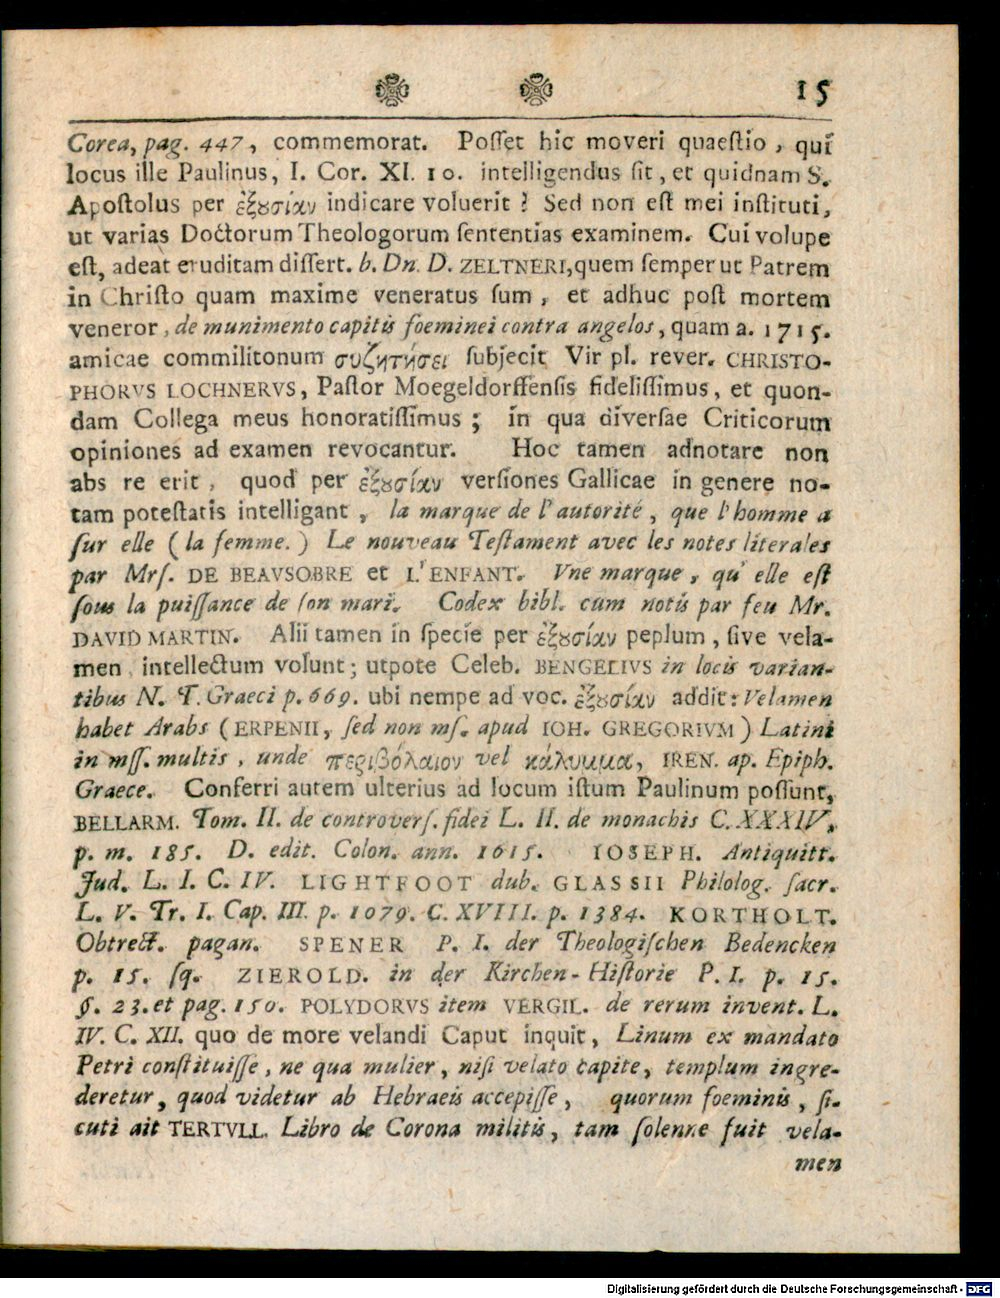 15
Corea, pag. 447, commemorat. Posſet hic moveri quaeſtio, qui
locus ille Paulinus, I. Cor. XI. 10. intelligendus ſit, et quidnam S.
Apoſtolus per ἐξȣσίαν indicare voluerit? Sed non eſt mei inſtituti,
ut varias Doctorum Theologorum ſententias examinem. Cui volupe
eſt, adeat eruditam disſert. b. Dn. D. ZELTNERI, quem ſemper ut Patrem
in Chriſto quam maxime veneratus ſum, et adhuc poſt mortem
veneror, de munimento capitis foeminei contra angelos, quam a. 1715.
amicae commilitonum συζητήσει ſubjecit Vir pl. rever. CHRISTO-
PHORVS LOCHNERVS, Paſtor Moegeldorffenſis fideliſſimus, et quon-
dam Collega meus honoratiſſimus; in qua diverſae Criticorum
opiniones ad examen revocantur. Hoc tamen adnotare non
abs re erit, quod per ἐξȣσίαν verſiones Gallicae in genere no-
tam poteſtatis intelligant, la marque de l'autorité, que l'homme a
ſur elle (la femme.) Le nouveau Teſtament avec les notes literales
par Mrſ. DE BEAVSOBRE et L'ENFANT. Vne marque, qu' elle eſt
ſous la puiſſance de ſon mari. Codex bibl. cum notis par feu Mr.
DAVID MARTIN. Alii tamen in ſpecie per ἐξȣσίαν peplum, ſive vela-
men, intellectum volunt; utpote Celeb. BENGELIVS in locis varian-
tibus N. T. Graeci p. 669. ubi nempe ad voc. ἐξȣσίαν addit: Velamen
habet Arabs (ERPENII, ſed non mſ. apud IOH. GREGORIVM) Latini
in mſſ. multis, unde περιβόλαιον vel κάλυμμα, IREN. ap. Epiph.
Graece. Conferri autem ulterius ad locum iſtum Paulinum poſſunt,
BELLARM. Tom. II. de controverſ. fidei L. II. de monachis C. XXXIV.
p. m. 185. D. edit. Colon. ann. 1615. IOSEPH. Antiquitt.
Jud. L. I. C. IV. LIGHTFOOT dub. GLASSII Philolog. ſacr.
L. V. Tr. I. Cap. III. p. 1079. C. XVIII. p. 1384. KORTHOLT.
Obtrect. pagan. SPENER P. I. der Theologiſchen Bedencken
p. 15. ſq. ZIEROLD. in der Kirchen-Hiſtorie P. I. p. 15.
§. 23. et pag. 150. POLYDORVS item VERGIL. de rerum invent. L.
IV. C. XII. quo de more velandi Caput inquit, Linum ex mandato
Petri conſtituiſſe, ne qua mulier, niſi velato capite, templum ingre-
deretur, quod videtur ab Hebraeis accepiſſe, quorum foeminis, ſi-
cuti ait TERTVLL. Libro de Corona militis, tam ſolenne fuit vela-
men
Digitalisierung gefördert durch die Deutsche Forschungsgemeinschaft - DFG